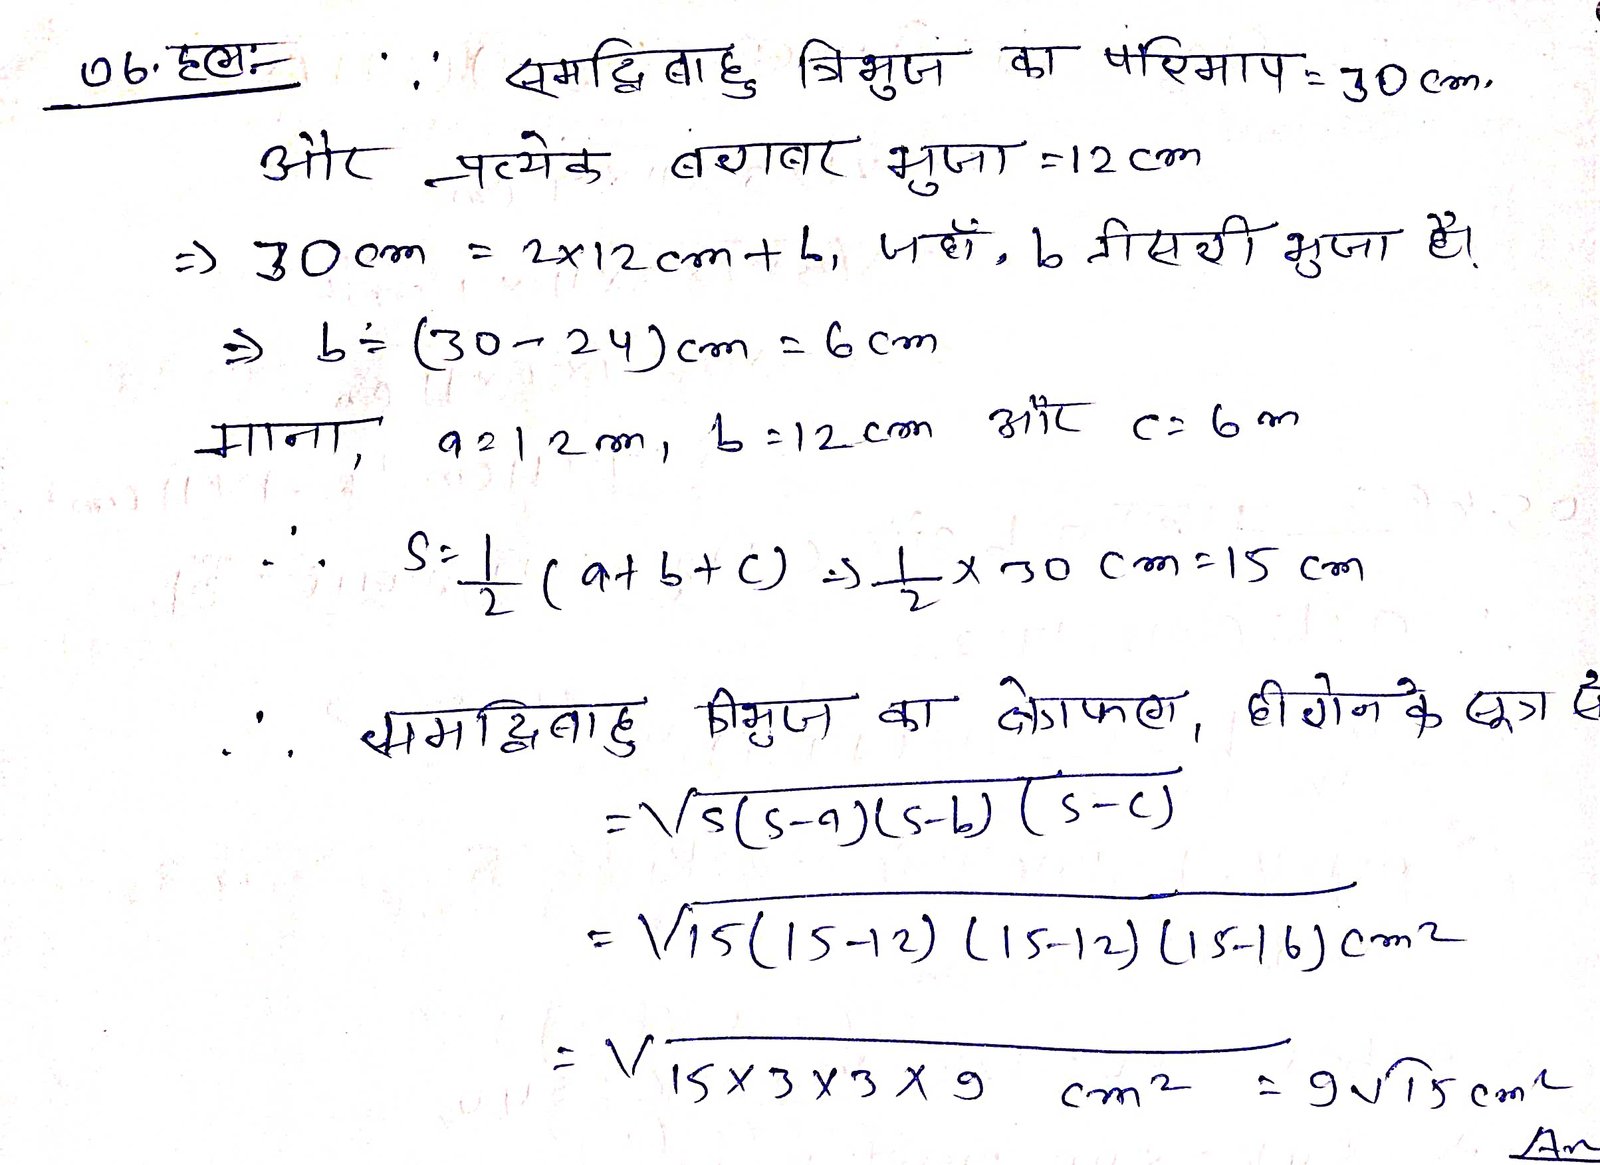 06. हलः- ∵ समद्विबाहु त्रिभुज का परिमाप = 30 cm.
और प्रत्येक बराबर भुजा = 12 cm
⇒ 30 cm = 2×12 cm + b, जहाँ, b तीसरी भुजा है।
⇒ b = (30 - 24) cm = 6 cm
माना, a = 12 m, b = 12 cm और c = 6 m
∴ S = 1/2 (a + b + c) ⇒ 1/2 × 30 cm = 15 cm
∴ समद्विबाहु त्रीभुज का क्षेत्रफल, हीरोन के सूत्र से
= √s(s-a)(s-b)(s-c)
= √15(15-12)(15-12)(15-16) cm²
= √15×3×3×9 cm² = 9√15 cm²
An